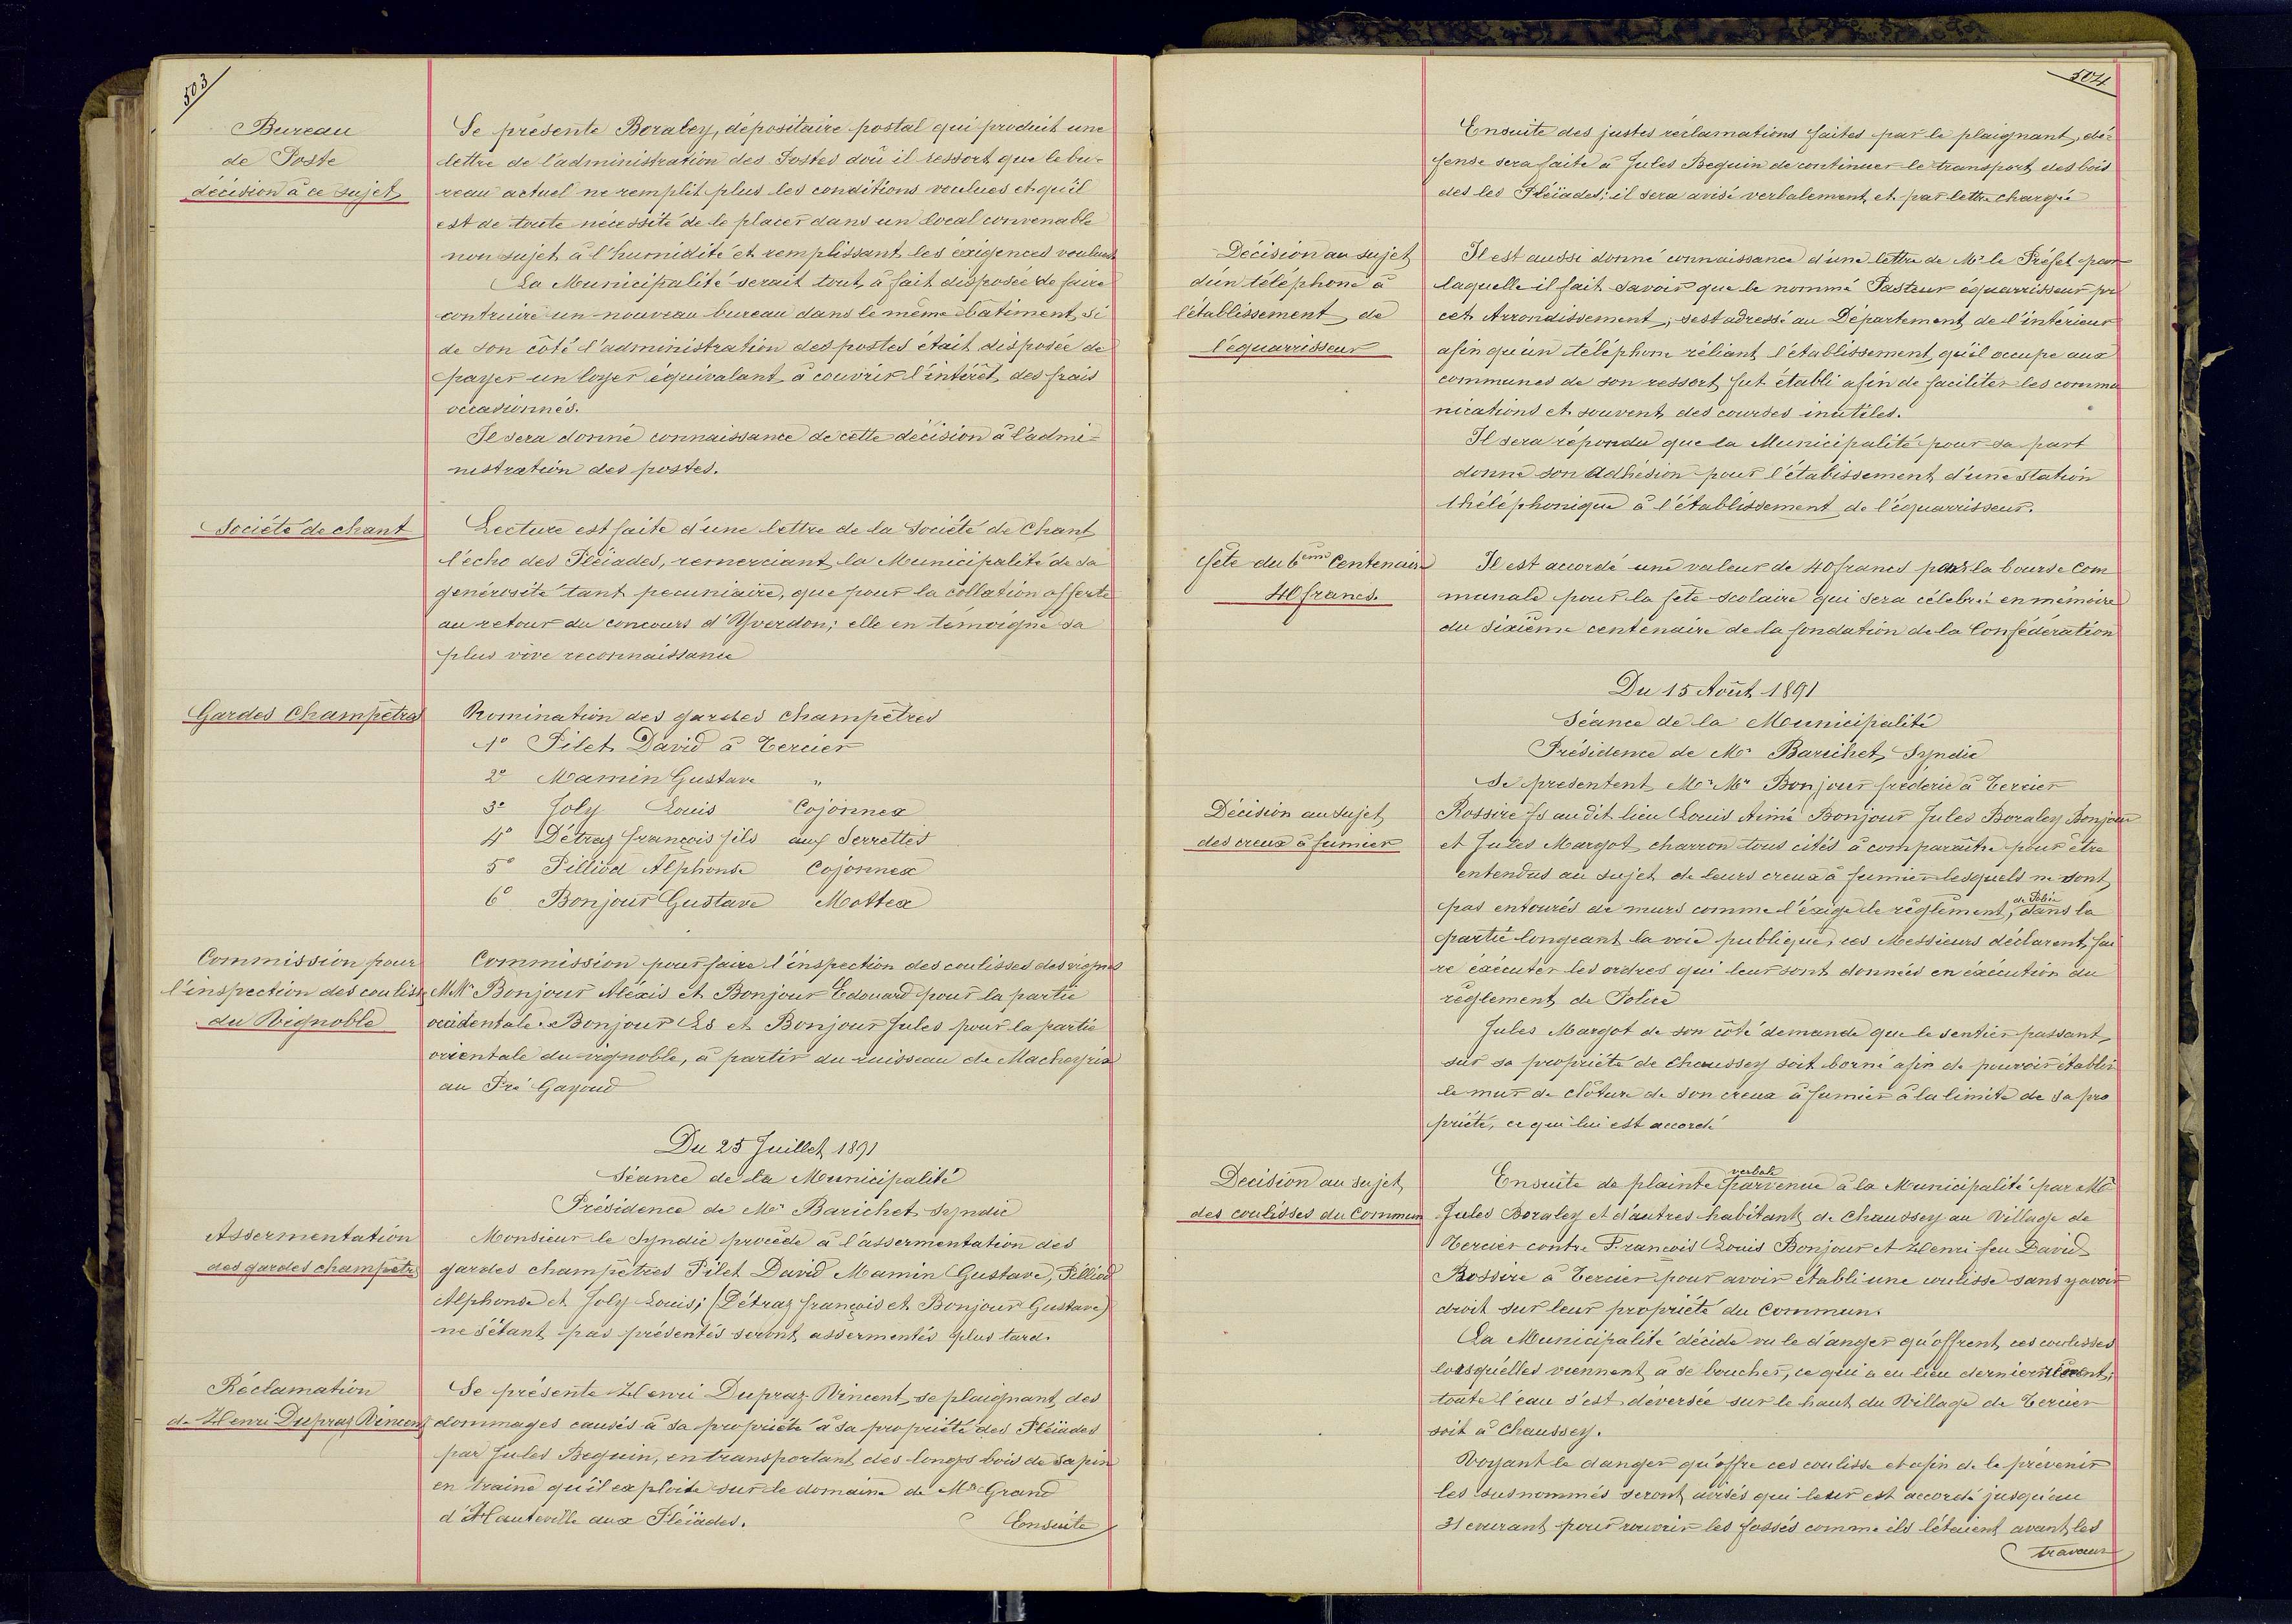 503
Bureau
de Poste
décision à ce sujet
Se présente Boraley, dépositaire postal qui produit une
lettre de l'administration des Postes d'où il ressort que le bu-
reau actuel ne remplit plus les conditions voulues et qu'il
est de toute nécessité de le placer dans un local convenable
non sujet à l'humidité et remplissant les éxigences voulues
La Municipalité serait tout à fait disposée de faire
contruire un nouveau bureau dans le même bâtiment si
de son côté l'administration des postes était disposée de
payer un loyer équivalant à couvrir l'intérêt des frais
occasionnés.
Il sera donné connaissance de cette décision à l'admi-
nistration des postes.
Société de chant
Lecture est faite d'une lettre de la Société de Chant
l'écho des Pléiades, remerciant la Municipalité de sa
générosité tant pecuniaire, que pour la collation offerte
au retour du concours d'Yverdon; elle en témoigne sa
plus vive reconnaissance
Gardes Champêtres
Nomination des gardes champêtres
1° Pilet David à Tercier
2° Mamin Gustave "
3° Joly Louis Cojonnex
4° Détraz françois fils aux Serrettes
5° Pilliod Alphonse Cojonnex
6° Bonjour Gustave Mottex
Commission pour
l'inspection des couliss
du Vignoble
Commission pour faire l'inspection des coulisses des vignes
M.Mrs Bonjour Aléxis et Bonjour Edouard pour la partie
occidentale. Bonjour Ls et Bonjour Jules pour la partie
orientale du vignoble, à partir du ruisseau de Macheyrix
au Pré Gayoud
Du 25 Juillet 1891
Séance de la Municipalité
Présidence de Mr Barichet Syndic
Assermentation
des gardes champêtr
Monsieur le Syndic procède à l'assermentation des
gardes champêtres Pilet David Mamin Gustave, Pilliod
Alphonse et Joly Louis; (Détraz françois et Bonjour Gustave)
ne s'étant pas présentés seront assermentés plus tard.
Réclamation
de Henri Dupraz Vincent
Se présente Henri Dupraz Vincent, se plaignant des
dommages causés à sa propriété à sa propriété des Pléiades
par Jules Beguin, en transportant des longs bois de sapin
en traine qu'il exploite sur le domaine de Mr Grand
d'Hauteville aux Pléiades.
Ensuite
504
Ensuite des justes réclamations faites par le plaignant, dé-
fense sera faite à Jules Beguin de continuer le transport des bois
des les Pléiades; il sera avisé verbalement et par lettre chargée
Décision au sujet
d'un téléphone à
l'établissement de
l'équarrisseur
Il est aussi donné connaissance d'une lettre de Mr le Préfet par
laquelle il fait savoir que le nommé Pasteur équarrisseur pr
cet Arrondissement, s'est adressé au Département de l'intérieur
afin qu'un téléphone réliant l'établissement qu'il occupe aux
communes de son ressort fut établi afin de faciliter les commu
nications et souvent des courses inutiles.
Il sera répondu que la Municipalité pour sa part
donne son adhésion pour l'étabissement d'une station
théléphonique à l'établissement de l'équarrisseur.
fête du 6ème Centenaire
40 francs.
Il est accordé une valeur de 40 francs par la bourse Com
munale pour la fête scolaire qui sera célebrée en mémoire
du sixième centenaire de la fondation de la Confédération
Du 15 Août 1891
Séance de la Municipalité
Présidence de Mr Barichet, Syndic
Se presentent Mr Mr Bonjour fréderic à Tercier
Décision au sujet
des creux à fumier
Rossire Fs au dit lieu Louis Aimé Bonjour Jules Boraley Bonjour
et Jules Margot charron tous cités à comparaître pour être
entendus au sujet de leurs creux à fumier lesquels ne sont
pas entourés de murs comme l'éxige le règlement, de Police dans la
partie longeant la voie publique, ces Messieurs déclarent fai
re éxécuter les ordres qui leur sont donnés en éxécution du
règlement de Police
Jules Margot de son côté demande que le sentier passant
sur sa propriété de Chaussey soit borné afin de pouvoir établir
le mur de clôture de son creux à fumier à la limite de sa pro
priété, ce qui lui est accordé
Decision au sujet
des coulisses du Commun
Ensuite de plainte verbale parvenue à la Municipalité par Mr
Jules Boraley et d'autres habitants de Chaussey au Village de
Tercier contre François Louis Bonjour et Henri feu David
Rossire à Tercier pour avoir établi une coulisse sans y avoir
droit sur leur propriété du Commun.
La Municipalité décide vu le d'anger qu'offrent ces coulisses
lorsqu'elles viennent à se boucher, ce qui a eu lieu dernièrement;
toute l'eau s'est déversée sur le haut du Village de Tercier
soit à Chaussey.
Voyant le danger qu'offre ces coulisse et afin de le prévenir
les susnommés seront avisés qui leur est accordé jusqu'au
31 courant pour rouvrir les fossés comme ils l'étaient avant les
travaux